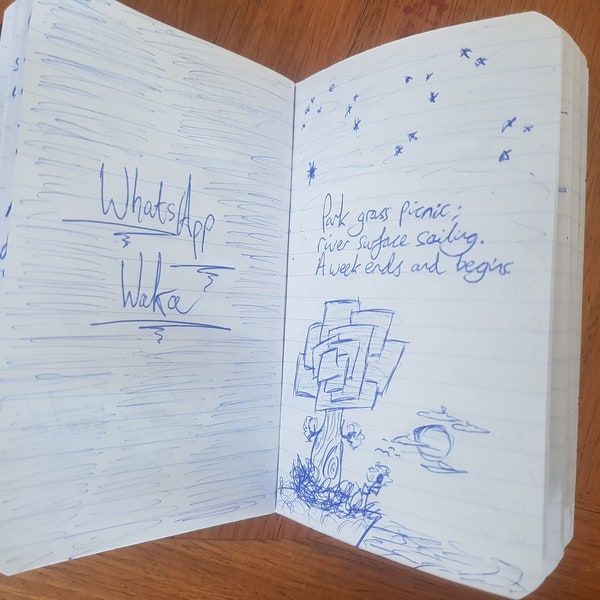 WhatsApp
Waka
Park grass picnic;
river surface sailing.
A week ends and begins.